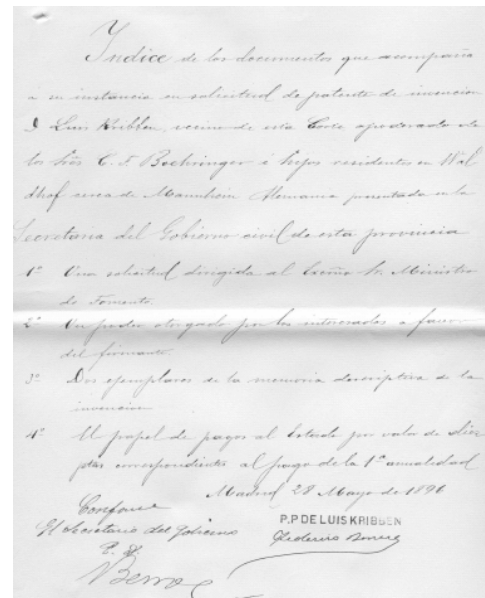 Indice de los documentos que acompaña
a su instancia en solicitud de patente de invencion
D Luis Kribben, vecino de esta Corte apoderado de
los Sres C. F. Boehringer é hijos residentes en Wal
dhof cerca de Mannheim Alemania presentada en la
Secretaria del Gobierno civil de esta provincia
1º Una solicitud dirigida al Excmo Sr. Ministro
de Fomento.
2º Un poder otorgado por los interesados a favor
del firmante.
3º Dos ejemplares de la memoria descriptiva de la
invencion
4º El papel de pagos al Estado por valor de diez
ptas correspondientes al pago de la 1ª anualidad
Madrid 28 Mayo de 1896
Conforme
El Secretario del Gobierno
P.P DE LUIS KRIBBEN